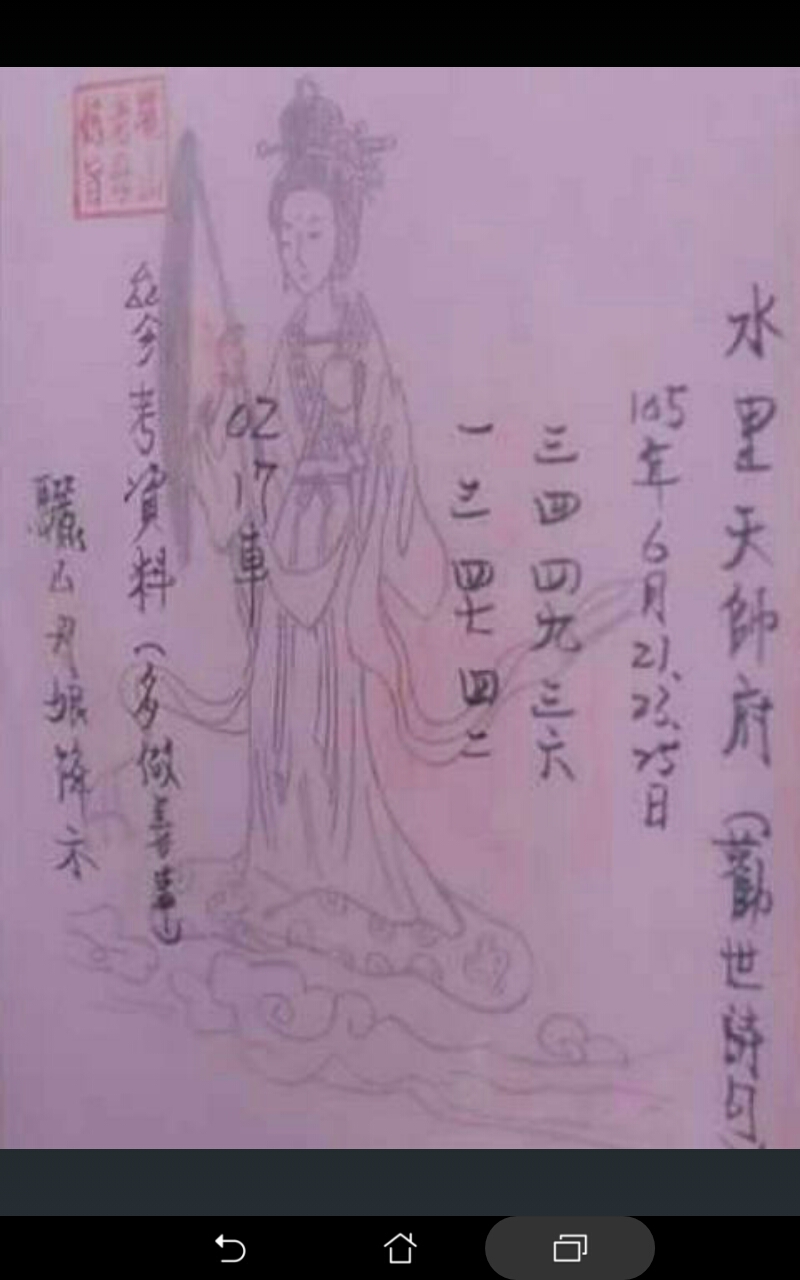 水里天師府(勸世詩句)
105年6月21、23、25日
三四 四九 三六
一二 四七 四二
02
17
車
參考資料(多做善事)
驪山
娘降示